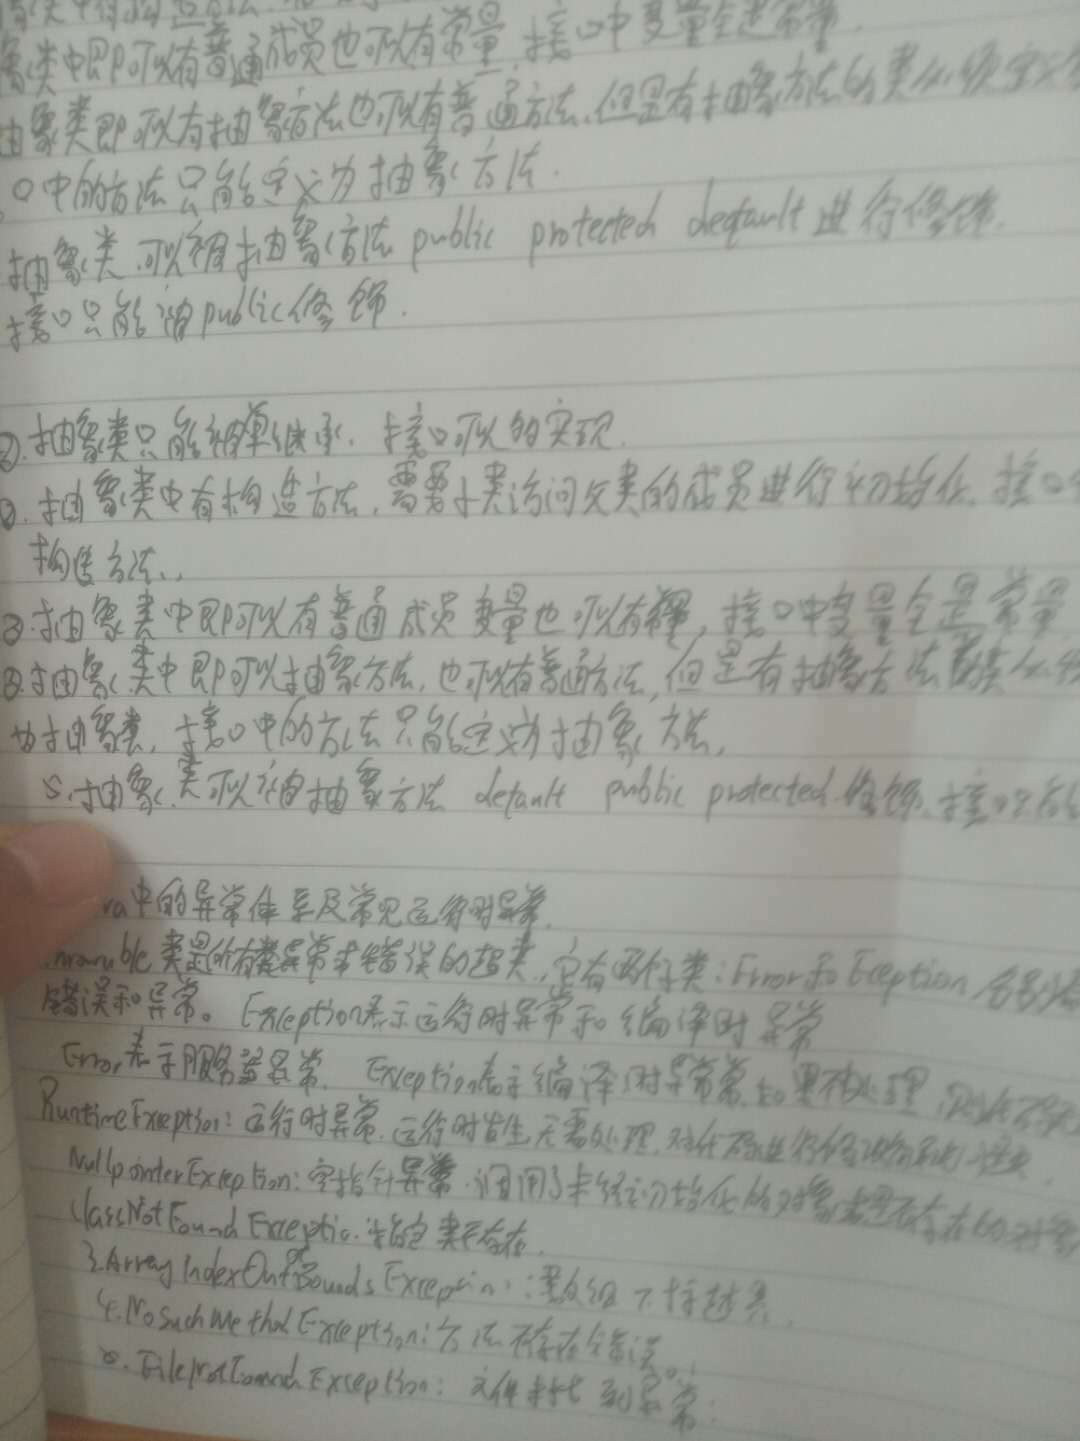 象类中即可以有普通成员也可以有常量,接口中变量全是常量.
抽象类即可以有抽象方法也可以有普通方法,但是有抽象方法的类必须定义
口中的方法只能定义为抽象方法.
抽象类可以被抽象方法 public protected deqault 进行修饰.
接口只能被public修饰.
②.抽象类只能被单继承. 接口可以的实现.
②. 抽象类中有构造方法,需要子类访问父类的成员进行初始化. 接口
构造方法.,
③.抽象类中即可以有普通成员变量也可以有常量,接口中变量全是常量
抽象类中即可以抽象方法,也可以有普通方法,但是有抽象方法
为抽象类, 接口中的方法只能定义为抽象方法,
5.抽象类可以被抽象方法 default public protected.修饰.接口只能
va中的异常体系及常见运行时异常.
类是所有异常和错误的超类.,它有两个子类:Error和Eception 分别
错误和异常。Exception表示运行时异常和编译时异常
Error表示服务器异常. Exception表示编译时异常 如果不处理,
RuntimeException:运行时异常.运行时发生,无需处理,对代码进行修
NullpointerException:空指针异常.调用了未经初始化的对象或是不存在的对象
ClassNotFound Exceptio.指定类不存在.
3.ArrayIndexOutOfBoundsException::数组下标越界.
4.NoSuchMethodException:方法不存在错误。
5.FileNotFoundException:文件找不到异常.